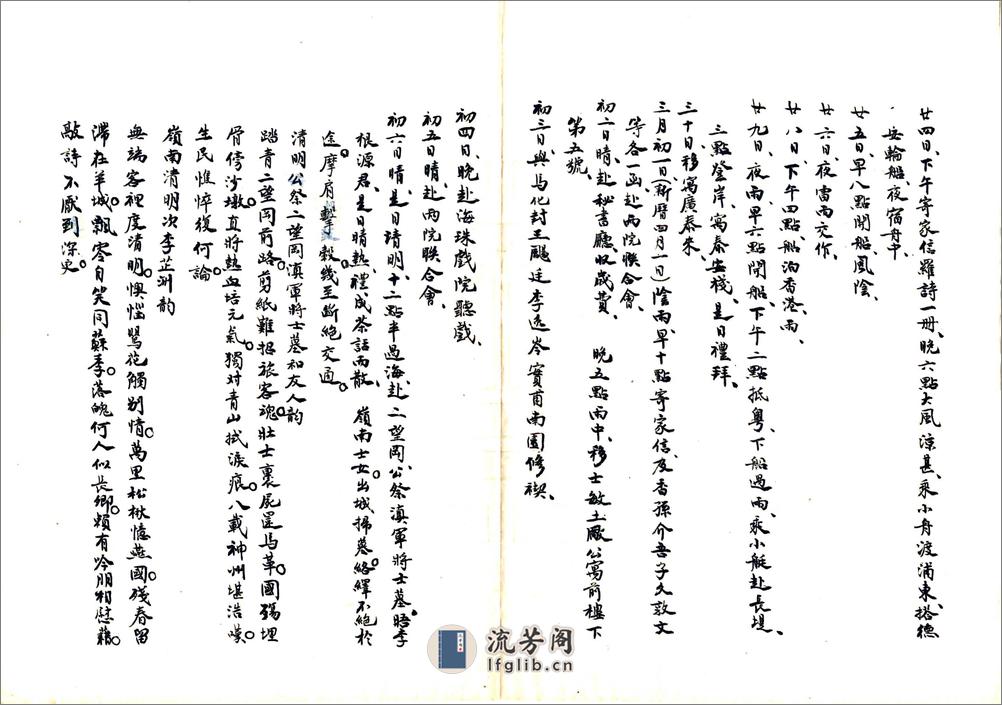 廿四日、下午寄家信羅詩一册、晚六點大風涼甚、乘小舟渡浦東、搭德
安輪船夜宿舟中、
廿五日、早八點開船、風陰、
廿六日、夜雷雨交作、
廿八日、下午四點船泊香港、雨、
廿九日、夜雨早六點開船、下午二點抵粵、下船遇雨、乘小艇赴長堤、
三點登岸、寓泰安棧、是日禮拜、
三十日、移寓廣泰來、
三月初一日、(新曆四月一日)陰雨、早十點寄家信、及香孫介吾子久敦文
等各一函赴兩院聯合會、
初二日晴、赴秘書廳收歲費、 晚五點雨中、移士敏土厰公寓前樓下
第五號、
初三日、與馬化封王颺廷李逸岑賓酉南園修禊、
初四日、晚赴海珠戲院聽戲、
初五日晴、赴兩院聯合會、
初六日晴、是日清明、十二點半過海、赴二望岡、公祭滇軍將士墓、晤李
根源君、是日晴熱、禮成茶話而散、 嶺南士女、出城掃墓、絡繹不絕於
途。摩肩擊轂、幾至斷絕交通。
清明公祭二望岡滇軍將士墓和友人韵
踏青二望岡前路。剪紙難招旅客魂。壯士裹屍還馬革。國殤埋
骨傍沙墩。直將熱血培元氣。獨對青山拭淚痕。八載神州堪浩嘆。
生民憔悴復何論。
嶺南清明次李芷洲韵
無端客裡度清明。懊惱鶯花觸别情。萬里松楸憶燕國。殘春留
滯在羊城。飄零自笑同蘇季。落魄何人似長卿。頗有吟朋相慰藉。
敲詩不厭到深更。
流芳阁
lfglib.cn